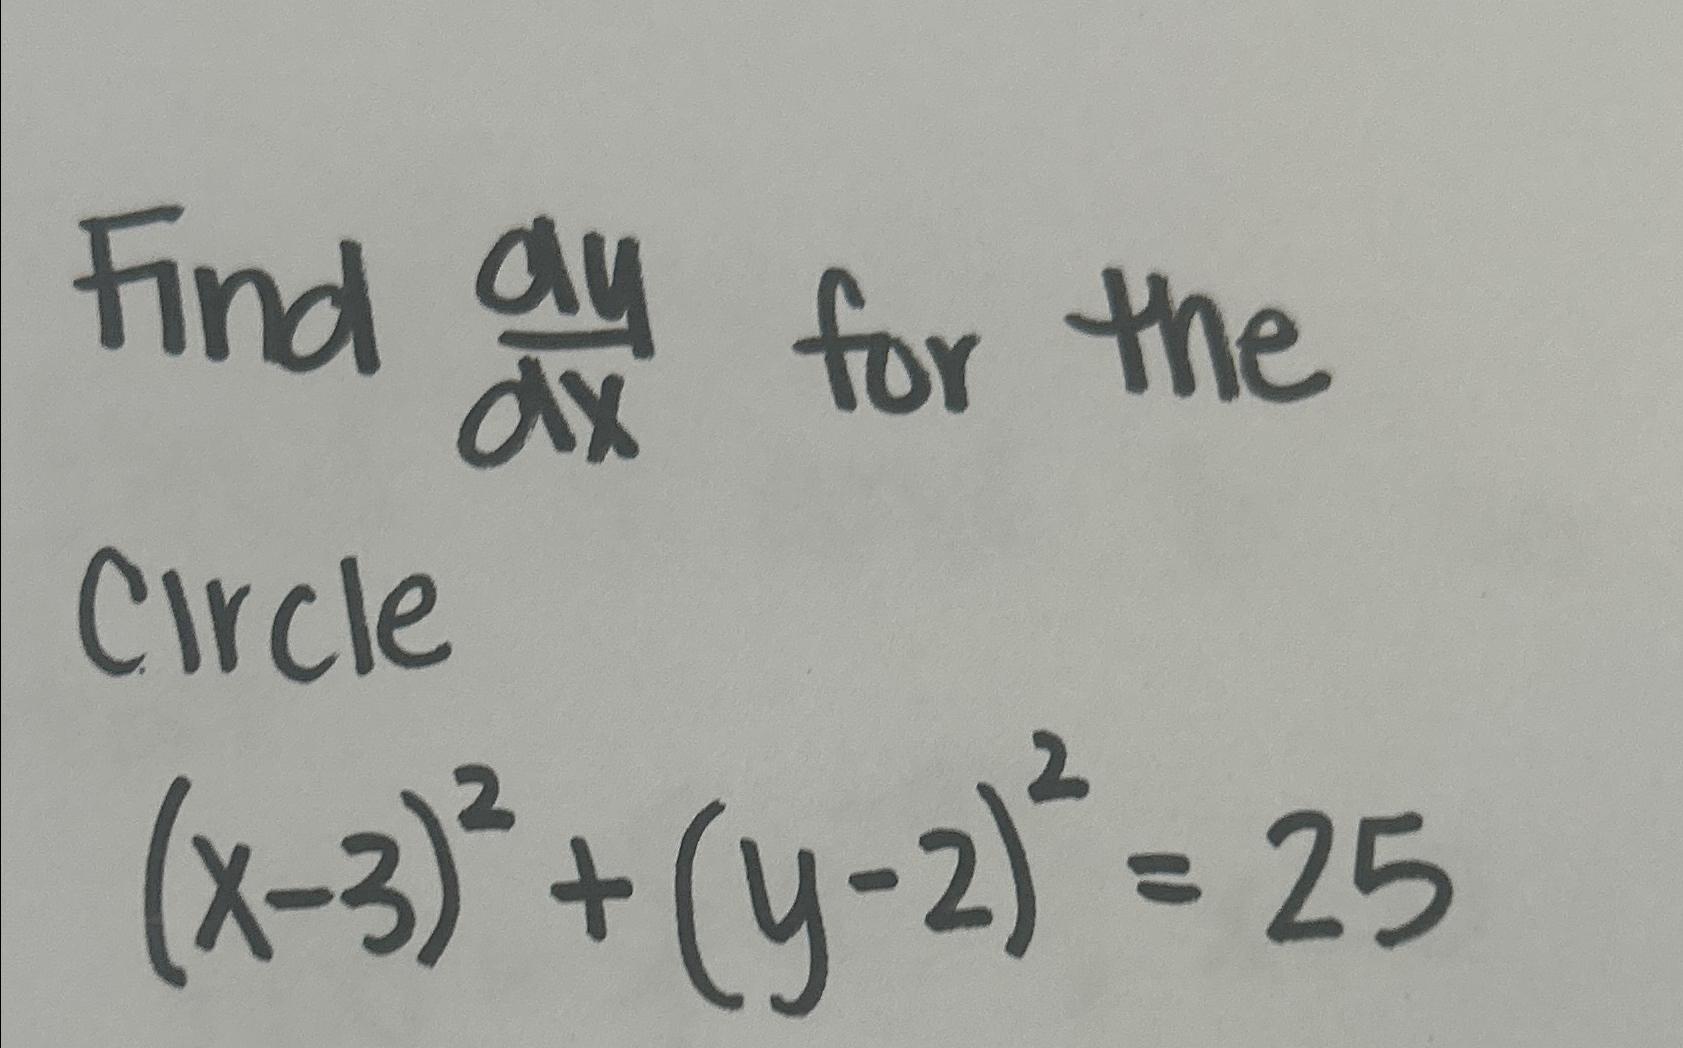 Find dy/dx for the
Circle
(x-3)² + (y-2)² = 25